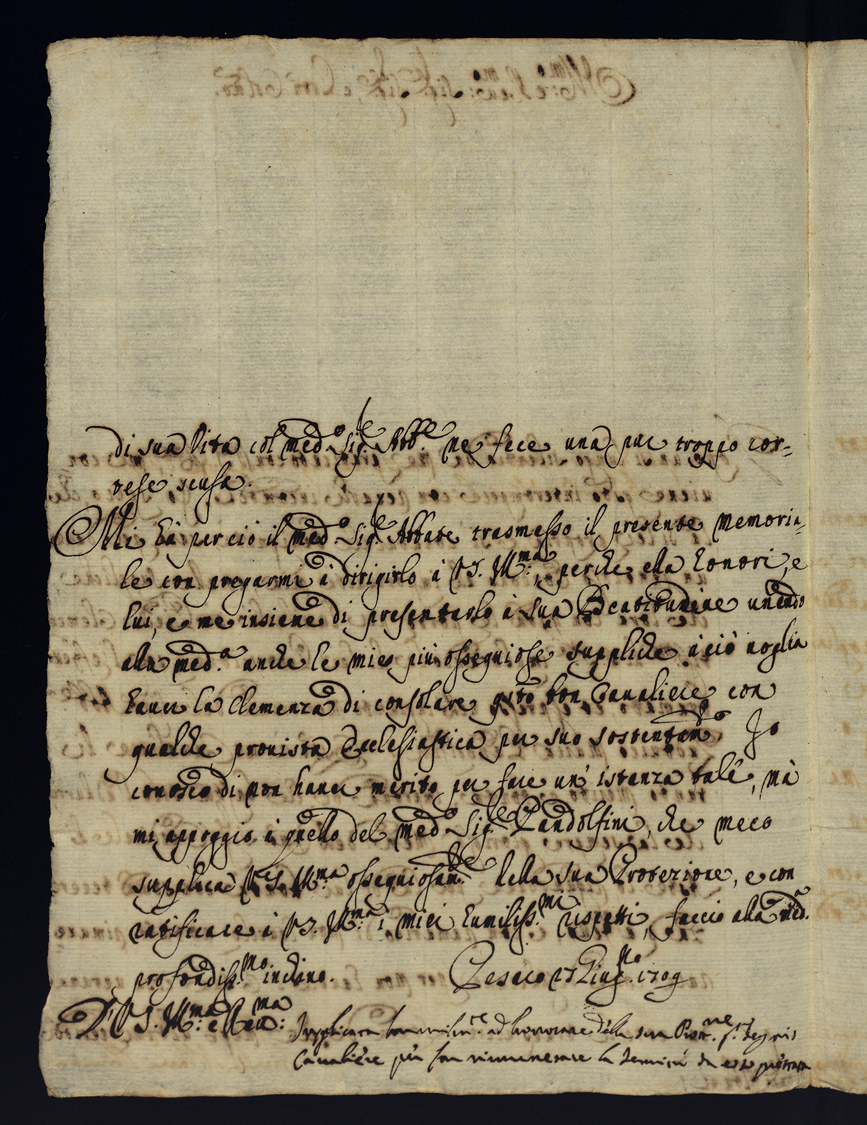 di sua Vita col med.º Sig.r Abb.e ne fece una pur troppo cor-
tese scusa.
Mi hà perciò il med.º Sig.r Abbate trasmesso il presente memoria-
le con pregarmi à dirigirlo à VS. Ill.ma, perche ella honori, e
lui, e me insieme di presentarlo à Sua Beatitudine unendo
alla med.a anche le mie più ossequiose suppliche acciò voglia
haver la Clemenza di consolare q.sto bon Cavaliere con
qualche provista Ecclesiastica per suo sostentam.to Io
conosco di non haver merito per fare un' istanza tale, mà
mi appoggio à quello del med.º Sig.re Pandolfini, che meco
supplica VS. Ill.ma ossequiosam.te della sua Protezione, e con
ratificare à VS. Ill.ma i miei humiliss.mi rispetti, faccio alla med.a
profondiss.mo inchino. Pesaro 27 Giug.no 1709
D. VS. Ill.ma e Rev.ma
Supplica ad honorare della sua Prot.ne
Cavaliere per